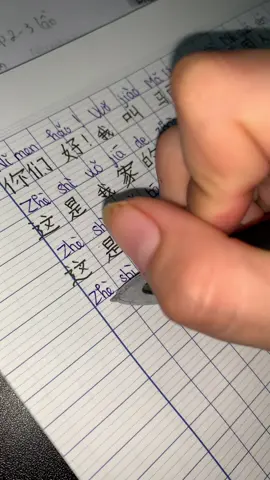 nǐ men hǎo! Wǒ jiào Mǎ
你们好!我叫马
Zhè shì wǒ jiā de
这是我家的
Zhè shì
这是
Zhè shì